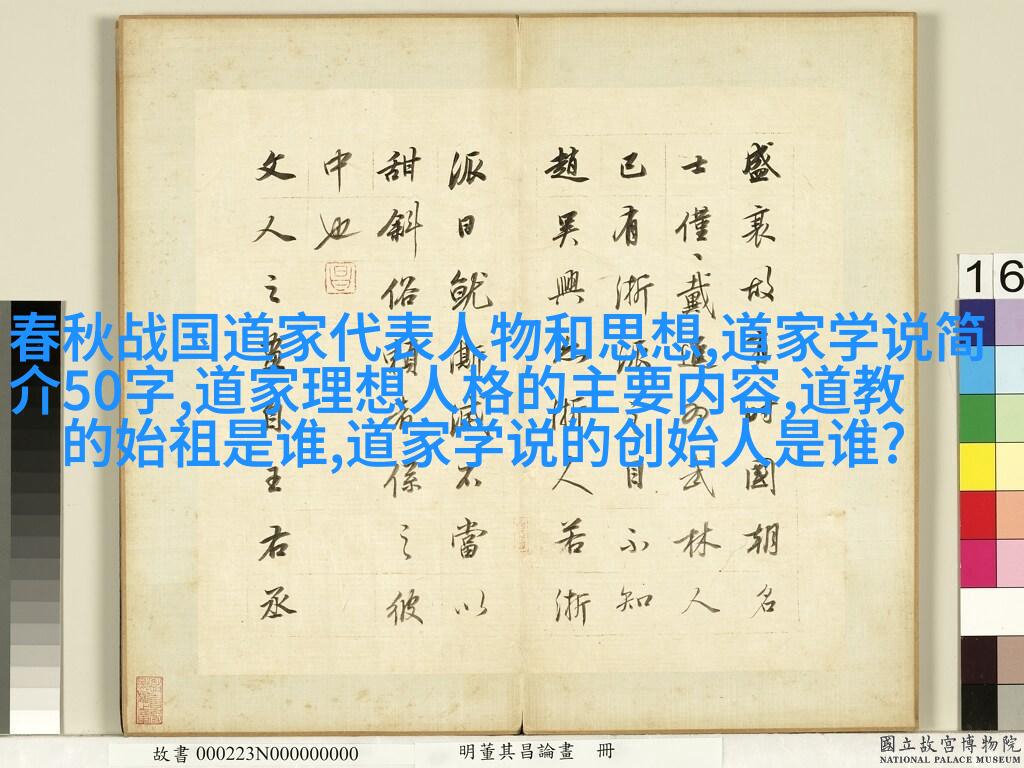 春秋战国道家代表人物和思想,道家学说简
介50字,道家理想人格的主要内容,道教
的始祖是谁,道家学说的创始人是谁?
盛衰故有時國朝名
士僅戴進為武林人
已有浙派之目不知
趙吳興亦浙人若浙
派日就澌滅不當以
甜斜俗賴者係之彼
中也
文人之畫自王右丞
16
故書 000223N000000000
明董其昌論畫 冊
國立故宮博物院
NATIONAL PALACE MUSEUM